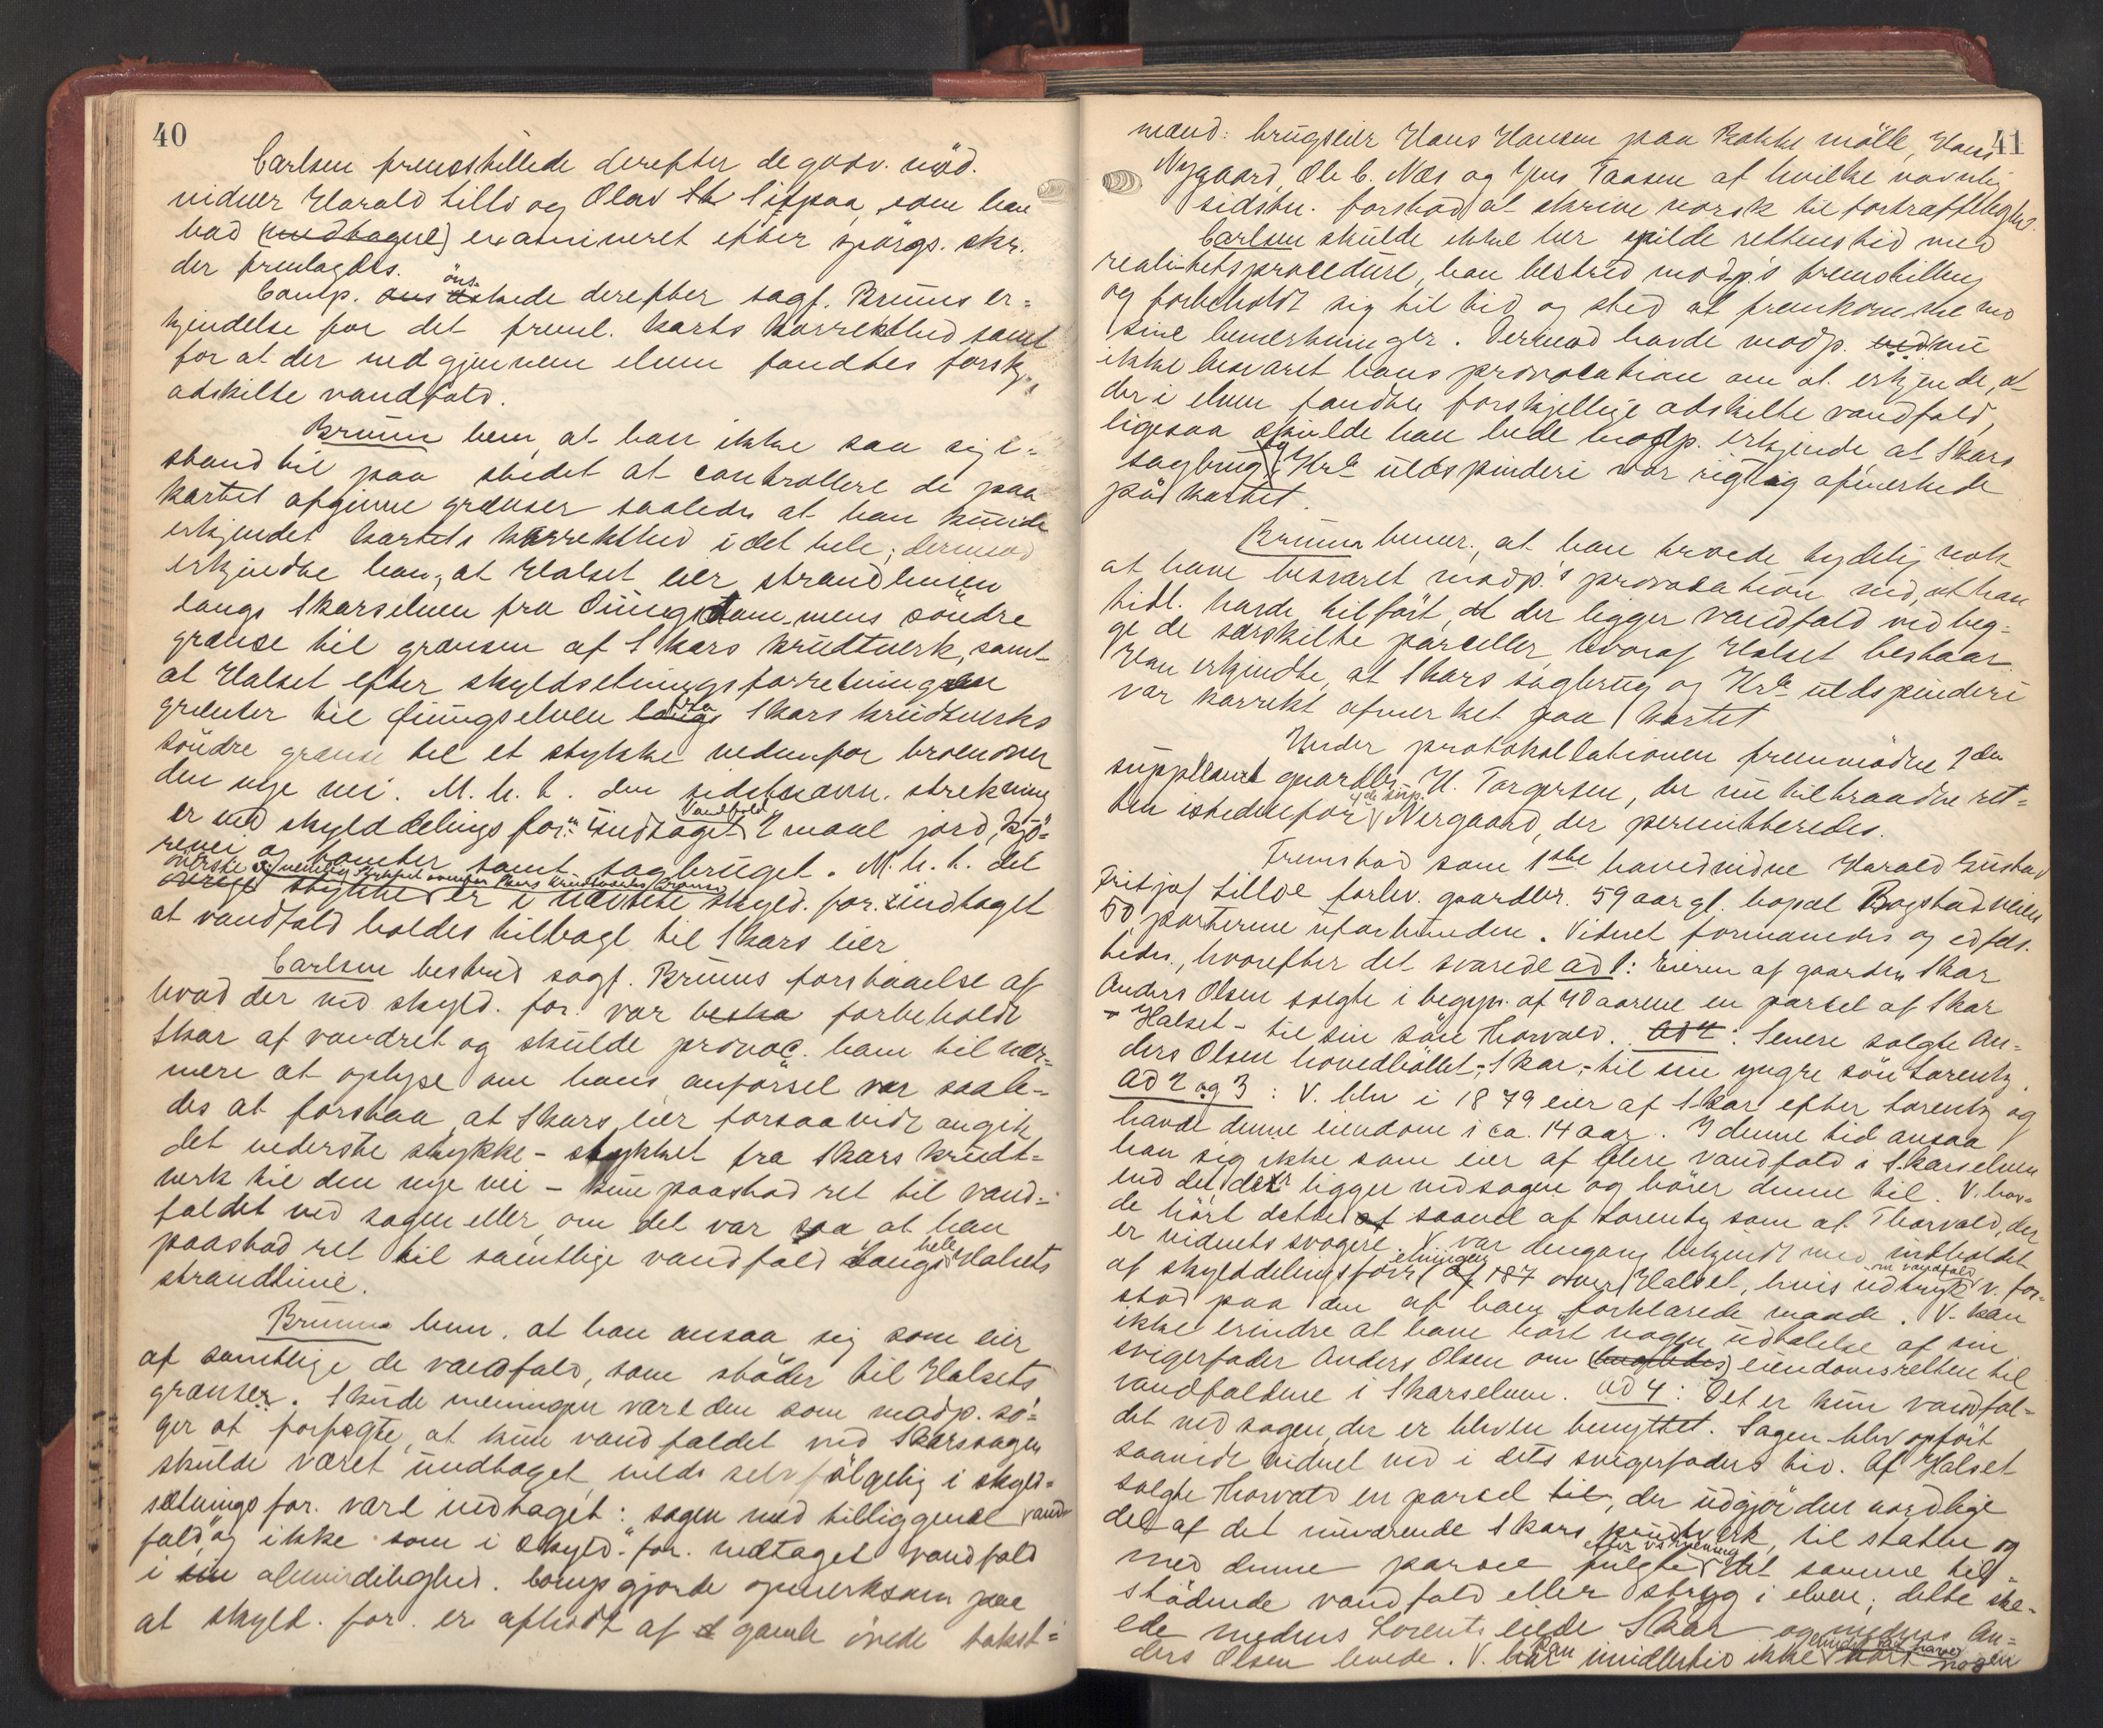 40
Carlsen fremstillede derefter de godv. möd.
vidner Harald Lillo og Olav Sitpaa, som han
bad (undtagne) examineret efter spörgs. skr.
der fremlagdes.
Comp. öns- skede derefter sagf. Bruuns er-
kjendelse for det freml. karts korrekthed samt
for at der nedgjennem elven fandtes forskj.
adskilte vandfald.
Bruun bem. at han ikke saa sig i-
stand til paa stedet at controllere de paa
kartet afgivne grænser saaledes at han kunde
erkjendet kartets korrekthed i det hele; derimod
erkjendte han, at Halset eier strandlinien
langs Skarselven fra dammens söndre
grænse til grænsen af Skars krudtverk, samt
at Halset efter skyldsetningsforretningen
grænter til elven fra Skars krudtverks
söndre grænse til et stykke nedenfor broen over
den nye vei. M. h. t. den sidstnævn. strekning
er ved skylddelingsfor. undtaget vandfald 2 maal jord, kjö-
reveie og tomter samt sagbruget. M. h. t. det
överste stykke er i skyld. for. undtaget
at vandfald holdes tilbage til Skars eier
Carlsen bestred sagf. Bruuns forstaaelse af
hvad der ved skyld. for. var forbeholdt
Skar af vandret og skulde provoc. ham til nær-
mere at oplyse om hans anförsel var saale-
des at forstaa at Skars eier forsaavidt angik
det nederste stykke - stykket fra Skars krudt-
verk til den nye vei - kun paastod ret til vand-
faldet ved sagen eller om det var saa at han
paastod ret til samtlige vandfald langs hele Halsets
strandlinie.
Bruun bem. at han ansaa sig som eier
af samtlige de vandfald, som stöder til Halsets
grænser. Skulde meningen være den som modp. sö-
ger at forfægte, at kun vandfaldet ved Skarssagen
skulde været undtaget, vilde selvfölgelig i skyld-
sætnings for. være indtaget: sagen med tilliggende vand-
fald, og ikke som i skyld. for. undtaget vandfald
i almindelighed. Comp gjorde opmerksom paa
at skyld. for. er afholdt af gamle övede takst-
41
mænd: brugseier Hans Hansen paa Bakke mölle, Hans
Nygaard, Ole C. Næs og Jens Taasen af hvilke navnlig
sidstn. forstod at skrive norsk til fortræffelighed.
Carlsen skulde ikke her spilde rettens tid med
realitetsprocedure, han bestred modp's fremstilling
og forbeholdt sig til tid og sted at fremkomme med
sine bemerkninger. Derimod havde modp. nu
ikke besvaret hans provocation om at erkjende, at
der i elven fandtes forskjellige adskilte vandfald,
ligesaa skulde han bede modp. erkjende at Skars
sagbrug og Kra uldspinderi var rigtig afmerkede
på kartet.
Bruun bemer., at han troede tydelig nok
at have besvaret modp.'s provocation ved, at han
tidl. havde tilfört, at der ligger vandfald ved beg-
ge de særskilte parceller, hvoraf Halset bestaar.
Han erkjendte, at Skars sagbrug og Kra uldspinderi
var korrekt afmerket paa kartet
Under protokollationen fremmödte 2den
suppleant gaardbr. H. Torgersen, der nu tiltraadte ret-
ten istedenfor 4de sup. Nergaard, der permitteredes.
Fremstod som 1ste hovedvidne Harald Gustav
Fritjof Lilloe forhv. gaardbr. 59 aar gl. bopæl Bogstadveien
50 parterne uforbunden. Vidnet formanedes og edfæs-
tedes, hvorefter det svarede ad 1: Eieren af gaarden Skar
Anders Olsen solgte i begyn. af 70 aarene en parsel af Skar
- Halset - til sin sön Thorvald. ad 2: Senere solgte An-
ders Olsen hovedböllet, Skar, - til sin yngre sön Lorentz.
ad 2 og 3: V. blev i 1879 eier af Skar efter Lorentz og
havde denne eiendom i ca. 14 aar. I denne tid ansaa
han sig ikke som eier af flere vandfald i Skarselven
end det der ligger ved sagen og hörer denne til. V. hav-
de hört dette saavel af Lorentz som af Thorvald, der
er vidnets svogere. V. var dengang bekjendt med indholdet
af skylddelingsforretningen af 187 over Halset, hvis udtryk om vandfald v. for-
stod paa den af ham forklarede maade. V. kan
ikke erindre at have hört nogen udtalelse af sin
svigerfader Anders Olsen om eiendomsretten til
vandfaldene i Skarselven. ad 4: Det er kun vandfal-
det ved sagen, der er bleven benyttet. Sagen blev opfört
saavidt vidnet ved i dets svigerfaders tid. Af Halset
solgte Thorvald en parcel til, der udgjör den nordlige
del af det nuværende Skars krudtverk, til staten og
med denne parcel fulgte efter v's mening det samme til-
stödende vandfald eller stryg i elven; dette ske-
ede medens Lorentz eiede Skar og medens An-
ders Olsen levede. V. kan imidlertid ikke erindre at have hört nogen